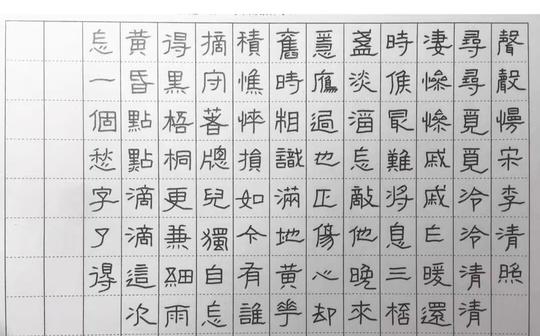 聲聲慢宋李清照
尋尋覓覓冷冷清清
凄慘慘戚戚乍暖還
時候最難將息三桮
盞淡酒怎敵他晚來
急鴈過也正傷心却
舊時相識滿地黃華
積憔悴損如今有誰
摘守著牕兒獨自怎
得黑梧桐更兼細雨
黃昏點點滴滴這次
怎一個愁字了得